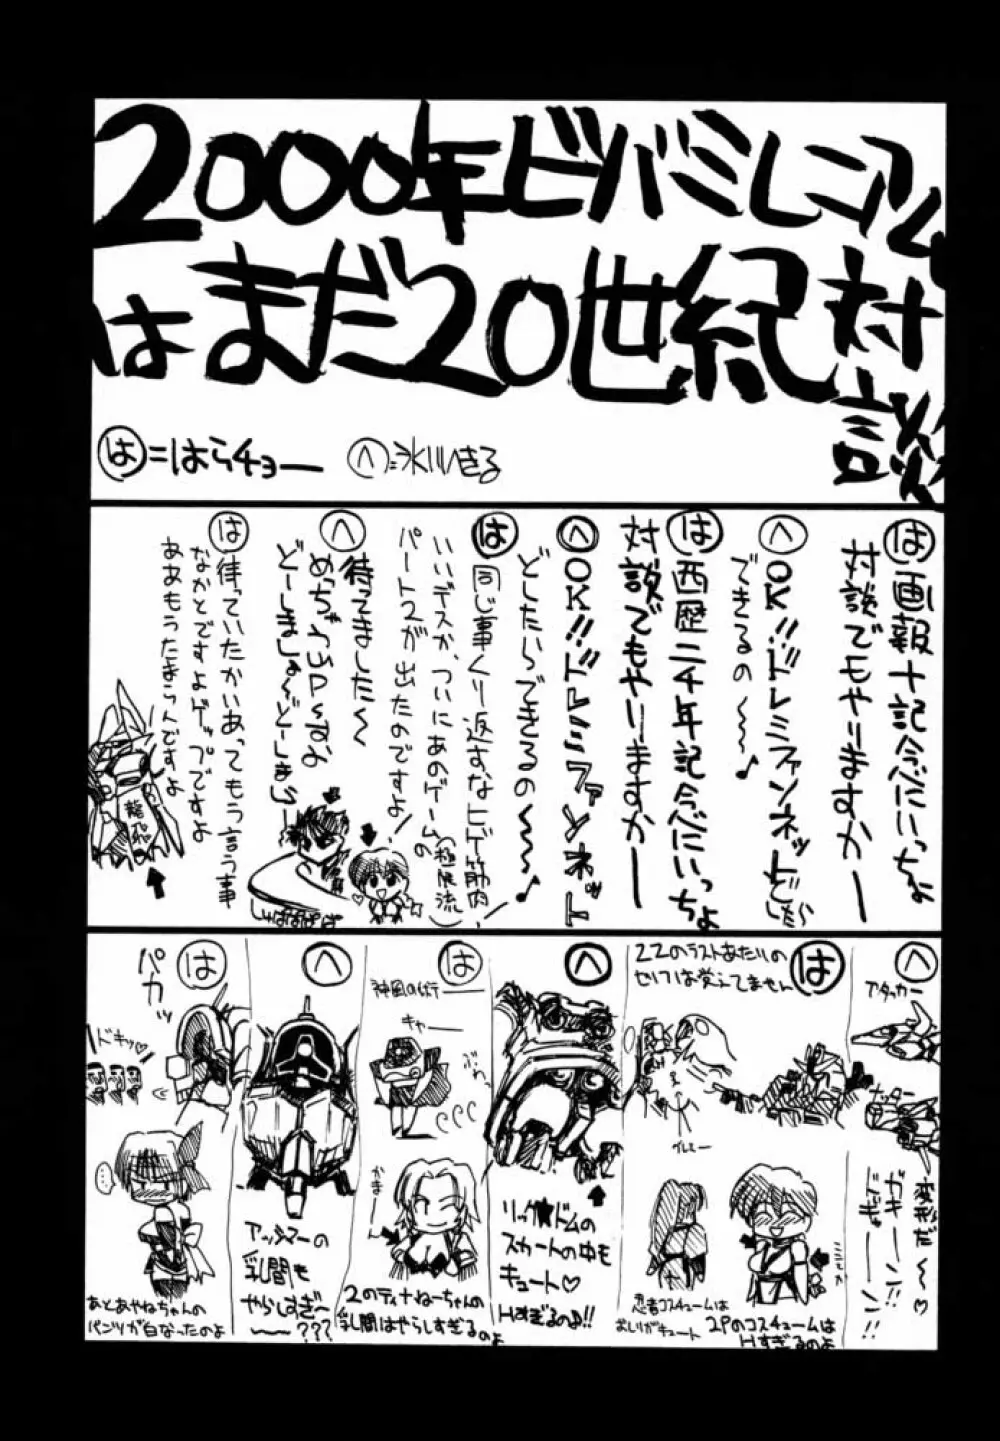 2000年ビバミレニアム
はまだ20世紀対談
は=はらチョー
へ=氷川へきる
は 画報十記念にいっちょ
対談でもやりますかー
へ OK!!ドレミファンネットどしたら
できるの〜〜〜♪
は 西歴二千年記念にいっちょ
対談でもやりますかー
へ OK!!ドレミファンネット
どしたらできるの〜〜〜♪
は 同じ事くり返すなヒゲ筋肉!
いいデスか、ついにあのゲーム(極限流)の
パート2が出たのですよ!
へ 待ってました〜
は 待っていたかいあってもう言う事
なかとですよゲップですよ
ああもうたまらんですよ
龍飛
へ
アタッカー
ナッター
変形だ〜♡
ガキーーン!!
は
ZZのラストあたりの
セリフは覚えてません
忍者コスチュームは
おしりがキュート
2Pのコスチュームは
Hすぎるのよ
へ
リック★ドムの
スカートの中も
キュート♡
Hすぎるのよ!!
は
キャー
2のティナねーちゃんの
乳間はやらしすぎるのよ
へ
アッシマーの
乳間も
やらしすぎ〜
〜〜???
は
パカッ
ドキッ♡
…
あとあやねちゃんの
パンツが白なったのよ